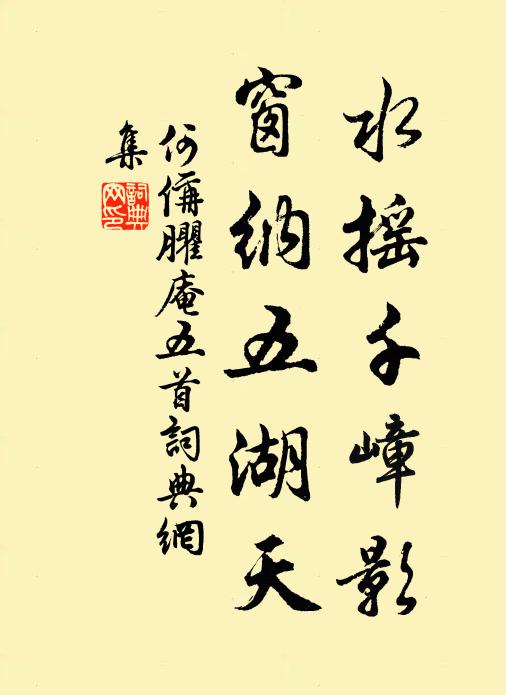 水摇千嶂影
窗纳五湖天
何俌臞庵五首詞典網
集
詞典
网印